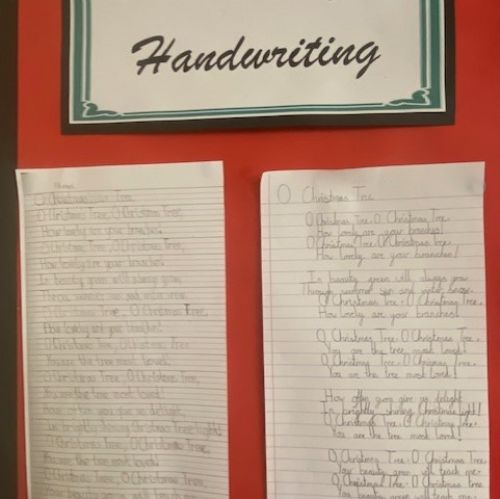 Handwriting
O Christmas Tree
O Christmas Tree, O Christmas Tree,
How lovely are your branches!
O Christmas Tree, O Christmas Tree,
How lovely are your branches!
In beauty green will always grow
Through summer sun and winter
O Christmas Tree, O Christmas Tree,
How lovely are your branches!
O Christmas Tree, O Christmas Tree,
You are the tree most loved!
O Christmas Tree, O Christmas Tree,
You are the tree most loved!
How often you give us delight
In brightly shining Christmas Tree light!
O Christmas Tree, O Christmas Tree,
You are the tree most loved!
O Christmas Tree, O Christmas Tree,
O Christmas Tree
O Christmas Tree, O Christmas Tree,
How lovely are your branches!
O Christmas Tree, O Christmas Tree,
How lovely are your branches!
In beauty green will always grow
Through summer sun and winter
O Christmas Tree, O Christmas Tree,
How lovely are your branches!
O Christmas Tree, O Christmas Tree,
You are the tree most loved!
O Christmas Tree, O Christmas Tree,
You are the tree most loved!
How often you give us delight
In brightly shining Christmas light!
O Christmas Tree, O Christmas Tree,
You are the tree most loved!
O Christmas Tree, O Christmas Tree,
Your beauty green will teach me
O Christmas Tree, O Christmas Tree
Your beauty green will teach me